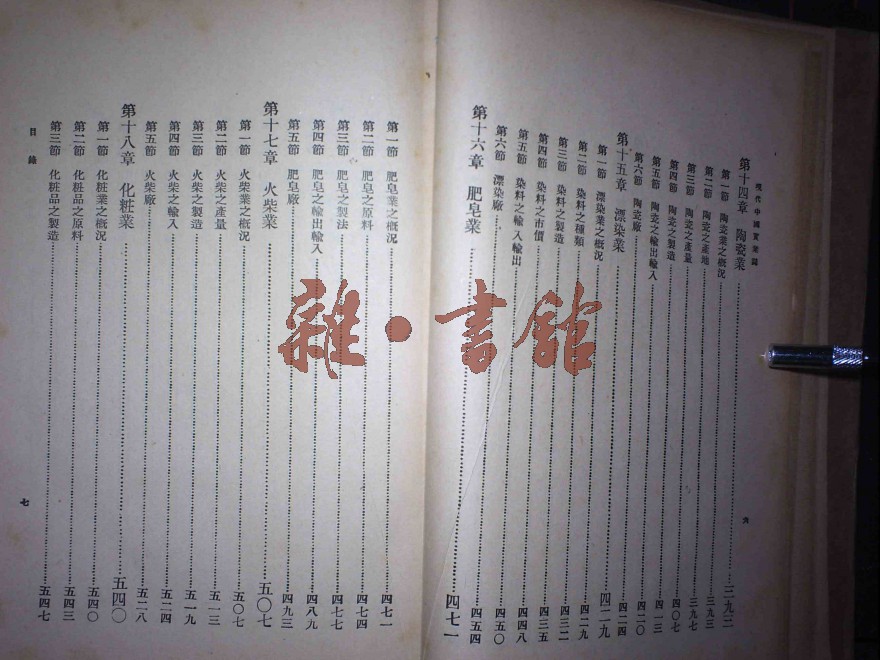 現代中國實業誌
第十四章 陶瓷業 三九三
第一節 陶瓷業之概況 三九三
第二節 陶瓷之產地 三九七
第三節 陶瓷之產量 四〇七
第四節 陶瓷之製造 四一三
第五節 陶瓷之輸出輸入 四二〇
第六節 陶瓷廠 四二四
第十五章 漂染業 四二九
第一節 漂染業之概況 四二九
第二節 染料之種類 四三二
第三節 染料之製造 四三五
第四節 染料之市價 四四八
第五節 染料之輸入輸出 四五〇
第六節 漂染廠 四五四
第十六章 肥皂業 四七一
六
第一節 肥皂業之概況 四七一
第二節 肥皂之原料 四七四
第三節 肥皂之製法 四七七
第四節 肥皂之輸出輸入 四八九
第五節 肥皂廠 四九三
第十七章 火柴業 五〇七
第一節 火柴業之概況 五〇七
第二節 火柴之產量 五一三
第三節 火柴之製造 五一九
第四節 火柴之輸入 五二四
第五節 火柴廠 五二八
第十八章 化粧業 五四〇
第一節 化粧業之概況 五四〇
第二節 化粧品之原料 五四三
第三節 化粧品之製造 五四七
目錄
七
雜·書館